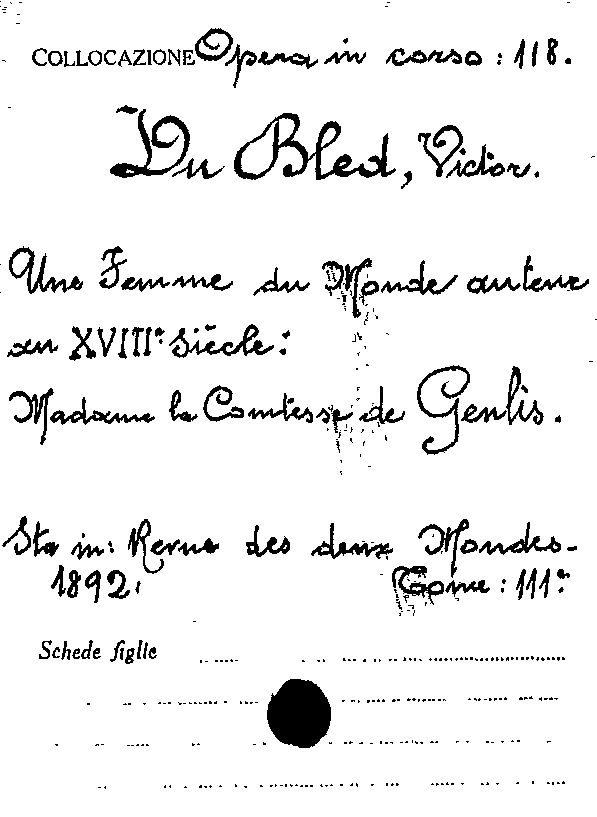 COLLOCAZIONE Opera in corso : 118.
Du Bled, Victor.
Une Femme du Monde auteur
au XVIIIe siècle :
Madame la Comtesse de Genlis.
Sta in : Revue des deux Mondes -
1892. Tome : 111e.
Schede figlie